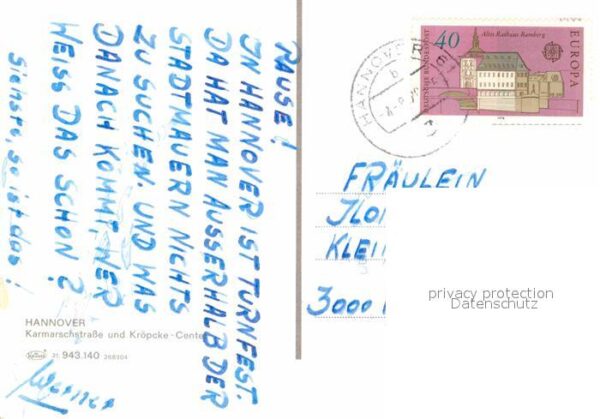 PAUSE!
IN HANNOVER IST TURNFEST.
DA HAT MAN AUSSERHALB DER
STADTMAUERN NICHTS
ZU SUCHEN. UND WAS
DANACH KOMMT, WER
WEISS DAS SCHON?
Siehste, so ist das!
Werner
HANNOVER
Karmarschstraße und Kröpcke-Cente
21. 943.140 268304
HANNOVER
b
Altes Rathaus Bamberg
40
DEUTSCHE BUNDESPOST
EUROPA
FRÄULEIN
ILO
KLEI
3000
privacy protection
Datenschutz